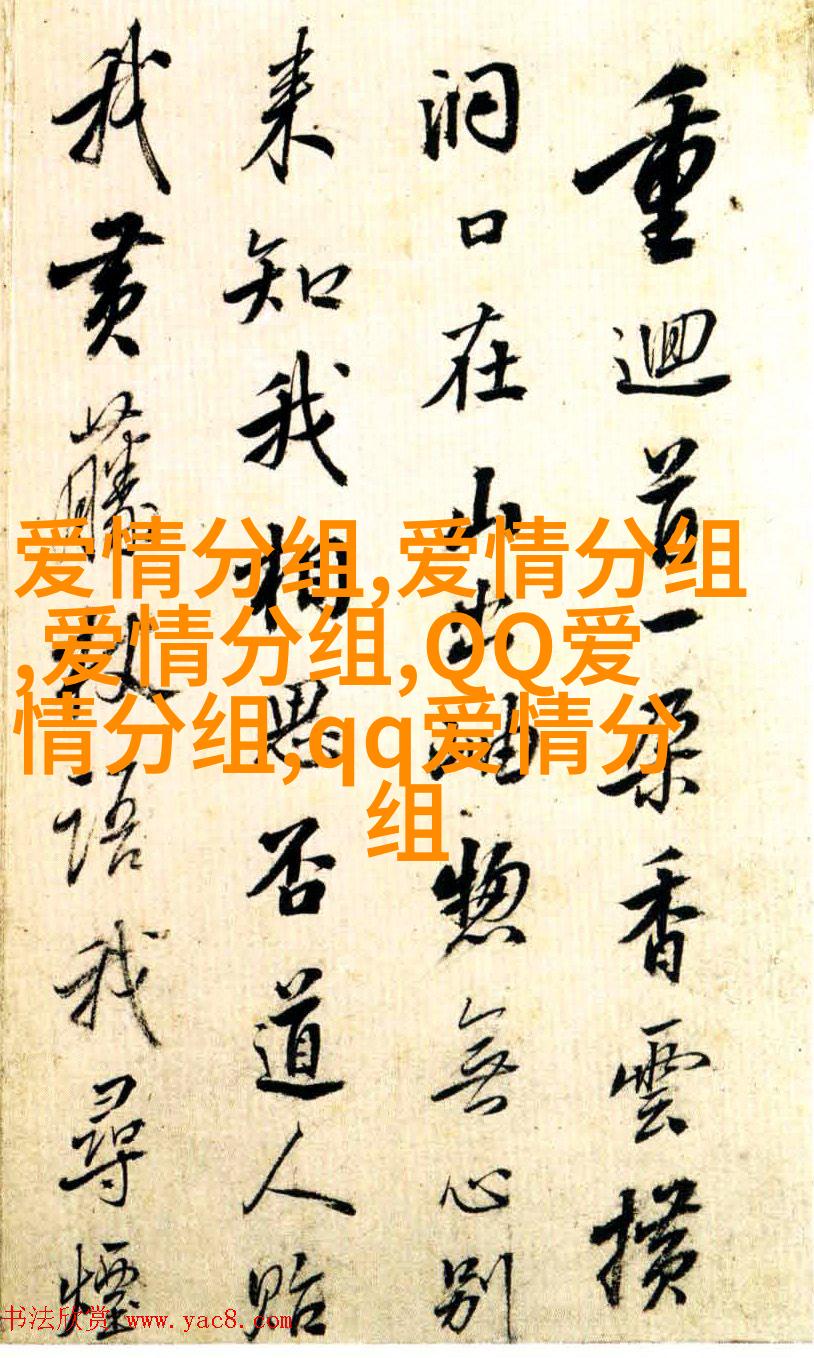 重迴首一朵香雲横
洞口在山出岫惣無心别
来知我相思否道人貽
我黄藤杖語我尋煙
爱情分组,爱情分组
,爱情分组,QQ爱
情分组,qq爱情分
组
书法欣赏 www.yac8.com